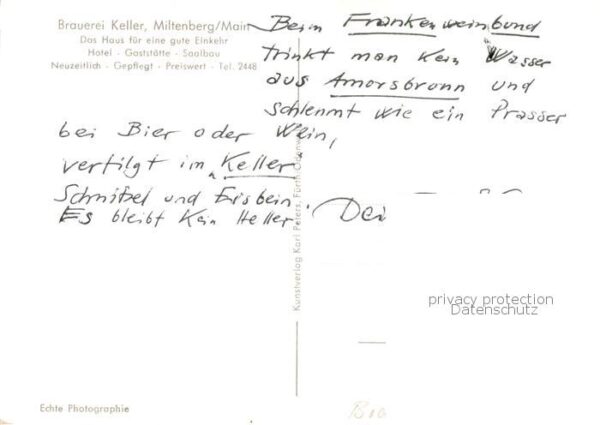 Brauerei Keller, Miltenberg/Main
Das Haus für eine gute Einkehr
Hotel - Gaststätte - Saalbau
Neuzeitlich - Gepflegt - Preiswert - Tel. 2448
Beim Frankenweinbund
trinkt man kein Wasser
aus Amorsbrunn und
schlemmt wie ein Prasser
bei Bier oder Wein,
vertilgt im "Keller"
Schnitzel und Eisbein.
Es bleibt kein Heller.
Dei
Kunstverlag Karl Peters, Fürth Odenw.
privacy protection
Datenschutz
Echte Photographie